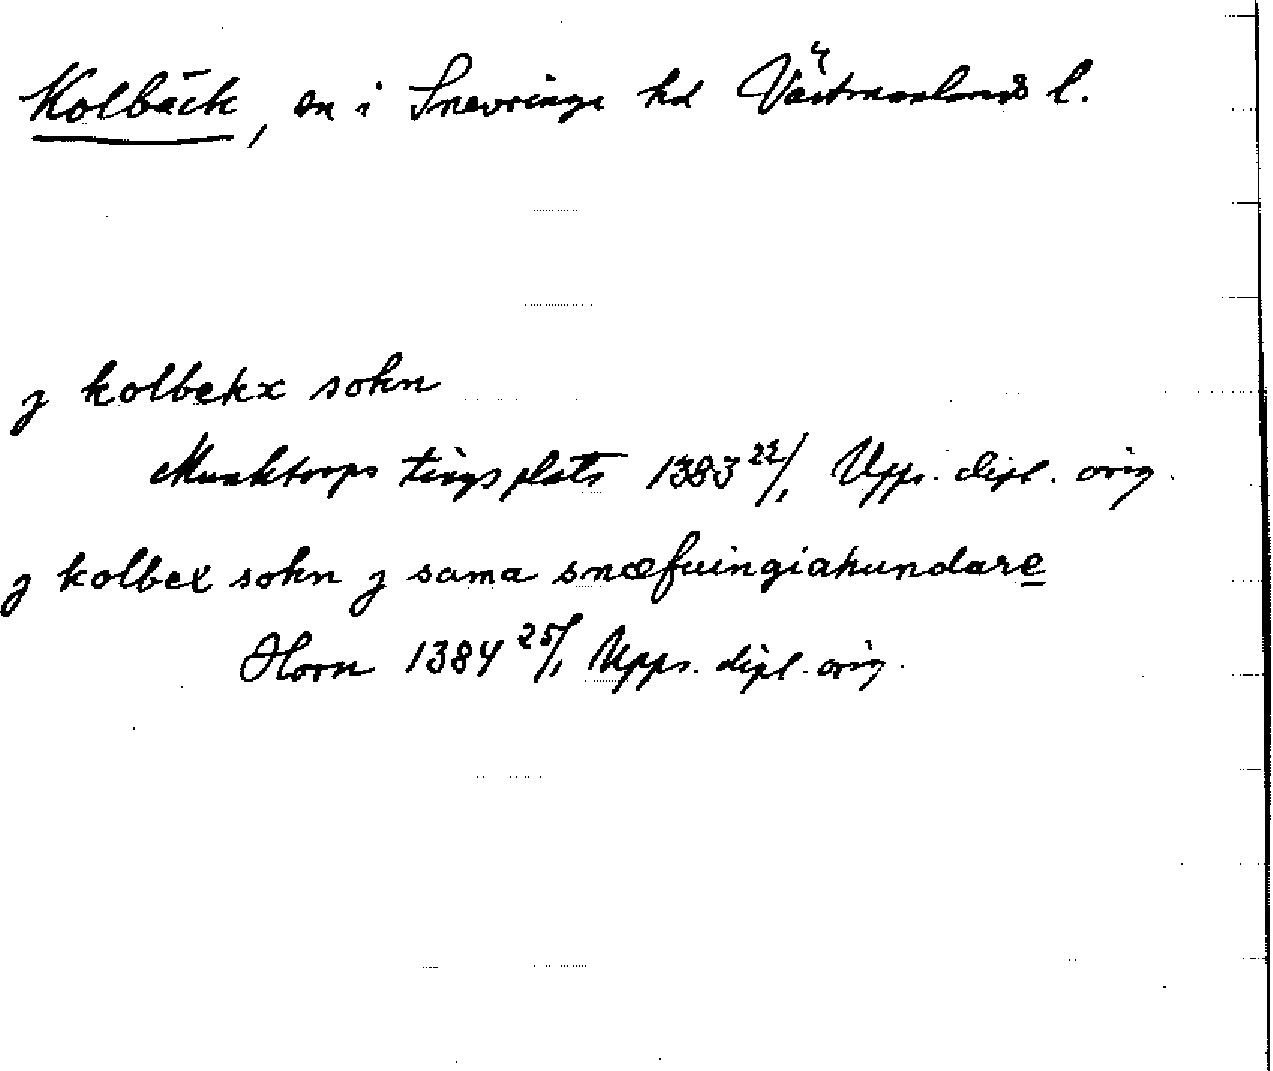 Kolbäck, sn i Snevringe hd Västmanlands l.
j kolbekx sokn
Munktorps tingsplats 1383 22/1 Upps. dipl. orig.
j kolbex sokn j sama snæfuingiahundare
Horn 1384 25/1 Upps. dipl. orig.